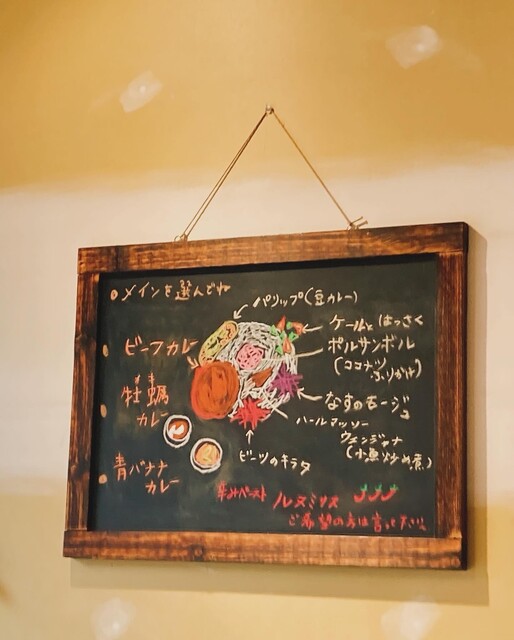 メインを選んでね
パリップ(豆カレー)
ケールと はっさく
ポルサンボル
(ココナツ
ふりかけ)
なすのモージュ
ハールマッソー
ウェンジャナ
(小魚炒め煮)
ビーフカレー
牡蠣
カレー
青バナナ
カレー
ビーツのキラタ
辛みペースト ルヌミリス
ご希望の方は言って下さい